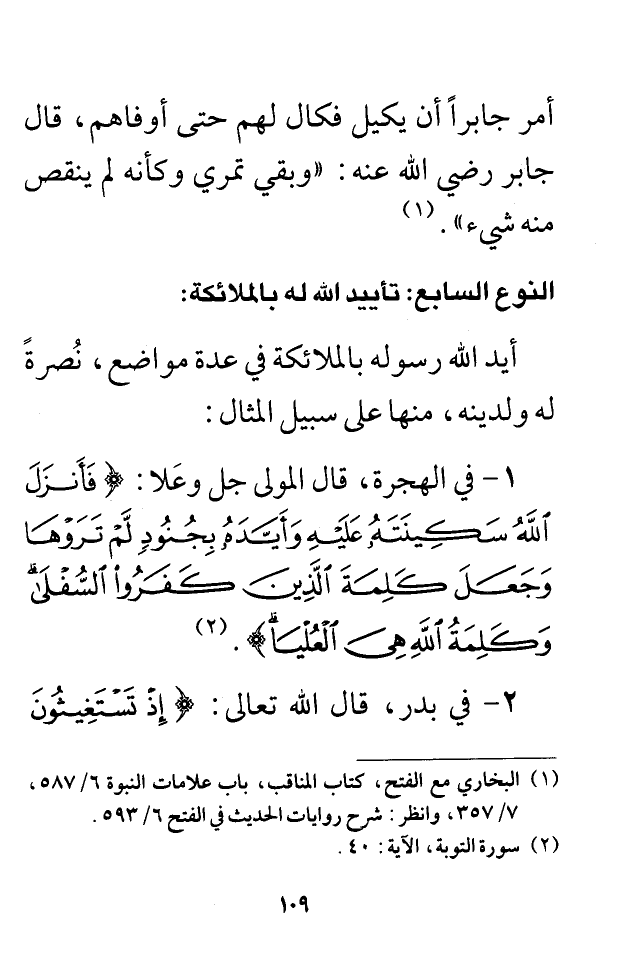 أمر جابراً أن يكيل فكال لهم حتى أوفاهم، قال
جابر رضي الله عنه: «وبقي تمري وكأنه لم ينقص
منه شيء».(١)
النوع السابع: تأييد الله له بالملائكة:
أيد الله رسوله بالملائكة في عدة مواضع، نُصرةً
له ولدينه، منها على سبيل المثال:
١- في الهجرة، قال المولى جل وعَلا: ﴿ فَأَنزَلَ
ٱللَّهُ سَكِينَتَهُۥ عَلَيْهِ وَأَيَّدَهُۥ بِجُنُودٍ لَّمْ تَرَوْهَا
وَجَعَلَ كَلِمَةَ ٱلَّذِينَ كَفَرُوا۟ ٱلسُّفْلَىٰ ۗ
وَكَلِمَةُ ٱللَّهِ هِىَ ٱلْعُلْيَا ۗ﴾.(٢)
٢- في بدر، قال الله تعالى: ﴿ إِذْ تَسْتَغِيثُونَ
(١) البخاري مع الفتح، كتاب المناقب، باب علامات النبوة ٦/ ٥٨٧،
٧/ ٣٥٧، وانظر: شرح روايات الحديث في الفتح ٦/ ٥٩٣.
(٢) سورة التوبة، الآية: ٤٠.
١٠٩